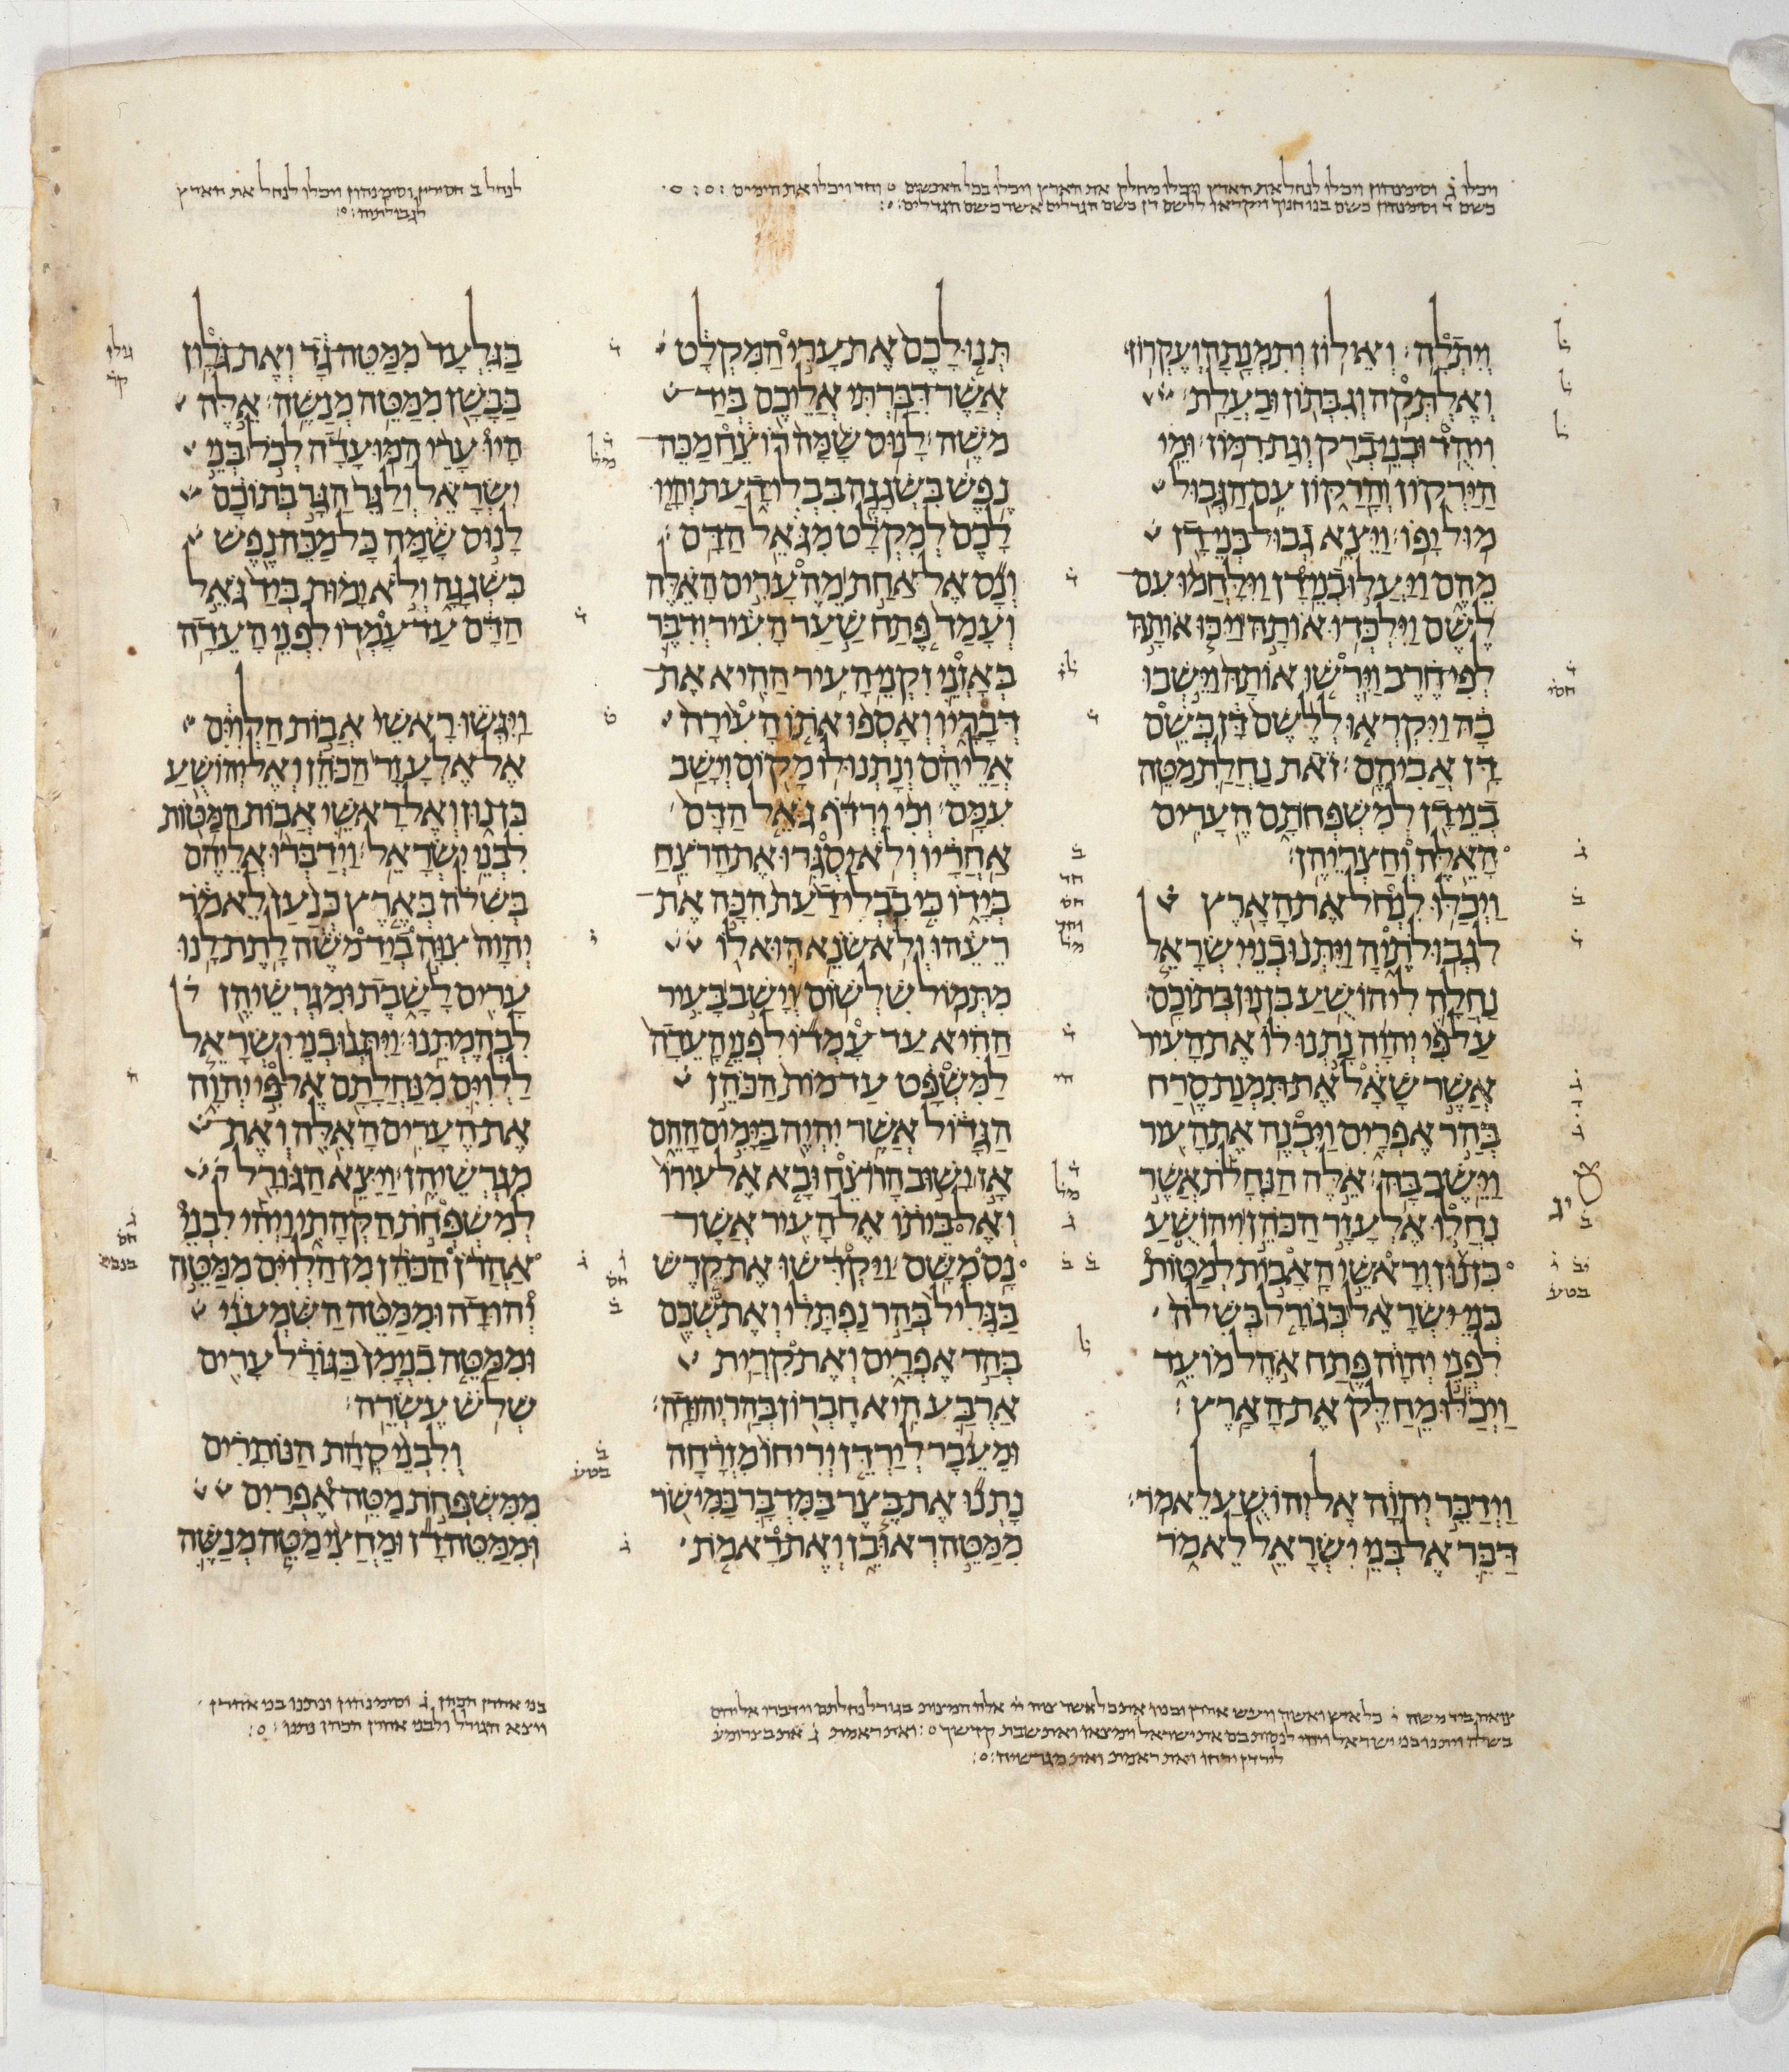 ויכלו ג וסימנהון ויכלו לנחל את הארץ ויכלו מחלק את הארץ ויכלו בכל האנשים וחד ויכלו את הימים
כשם ד וסימנהון כשם בנו חנוך ויקראו ללשם דן כשם הגדלים אשר כשם הגדלים
לנחל ב חסירין וסימנהון ויכלו לנחל את הארץ
לגבולתיה
ויתלה׃ ואילון ותמנתה ועקרון׃
ואלתקה וגבתון ובעלת׃
ויהד ובני ברק וגת רמון׃ ומי
הירקון והרקון עם הגבול
מול יפו׃ ויצא גבול בני דן
מהם ויעלו בני דן וילחמו עם
לשם וילכדו אותה ויכו אותה
לפי חרב וירשו אותה וישבו
בה ויקראו ללשם דן כשם
דן אביהם׃ זאת נחלת מטה
בני דן למשפחתם הערים
האלה וחצריהן׃
ויכלו לנחל את הארץ
לגבולתיה ויתנו בני ישראל
נחלה ליהושע בן נון בתוכם׃
על פי יהוה נתנו לו את העיר
אשר שאל את תמנת סרח
בהר אפרים ויבנה את העיר
וישב בה׃ אלה הנחלת אשר
נחלו אלעזר הכהן ויהושע
בן נון וראשי האבות למטות
בני ישראל בגורל בשלה
לפני יהוה פתח אהל מועד
ויכלו מחלק את הארץ׃
וידבר יהוה אל יהושע לאמר׃
דבר אל בני ישראל לאמר
תנו לכם את ערי המקלט
אשר דברתי אליכם ביד
משה׃ לנוס שמה רוצח מכה
נפש בשגגה בבלי דעת והיו
לכם למקלט מגאל הדם׃
ונס אל אחת מהערים האלה
ועמד פתח שער העיר ודבר
באזני זקני העיר ההיא את
דבריו ואספו אתו העירה
אליהם ונתנו לו מקום וישב
עמם׃ וכי ירדף גאל הדם
אחריו ולא יסגרו את הרצח
בידו כי בבלי דעת הכה את
רעהו ולא שנא הוא לו
מתמול שלשום׃ וישב בעיר
ההיא עד עמדו לפני העדה
למשפט עד מות הכהן
הגדול אשר יהיה בימים ההם
אז ישוב הרוצח ובא אל עירו
ואל ביתו אל העיר אשר
נס משם׃ ויקדשו את קדש
בגליל בהר נפתלי ואת שכם
בהר אפרים ואת קרית
ארבע היא חברון בהר יהודה׃
ומעבר לירדן יריחו מזרחה
נתנו את בצר במדבר במישר
ממטה ראובן ואת ראמת
בגלעד ממטה גד ואת גלון
בבשן ממטה מנשה׃ אלה
היו ערי המועדה לכל בני
ישראל ולגר הגר בתוכם
לנוס שמה כל מכה נפש
בשגגה ולא ימות ביד גאל
הדם עד עמדו לפני העדה
ויגשו ראשי אבות הלוים
אל אלעזר הכהן ואל יהושע
בן נון ואל ראשי אבות המטות
לבני ישראל׃ וידברו אליהם
בשלה בארץ כנען לאמר
יהוה צוה ביד משה לתת לנו
ערים לשבת ומגרשיהן
לבהמתנו׃ ויתנו בני ישראל
ללוים מנחלתם אל פי יהוה
את הערים האלה ואת
מגרשיהן׃ ויצא הגורל
למשפחת הקהתי ויהי לבני
אהרן הכהן מן הלוים ממטה
יהודה וממטה השמעני
וממטה בנימן בגורל ערים
שלש עשרה׃
ולבני קהת הנותרים
ממשפחת מטה אפרים
וממטה דן ומחצי מטה מנשה
בני אהרן הכהן ג וסימנהון ונתנו בני אהרן
ויצא הגורל ולבני אהרן הכהן נתנו